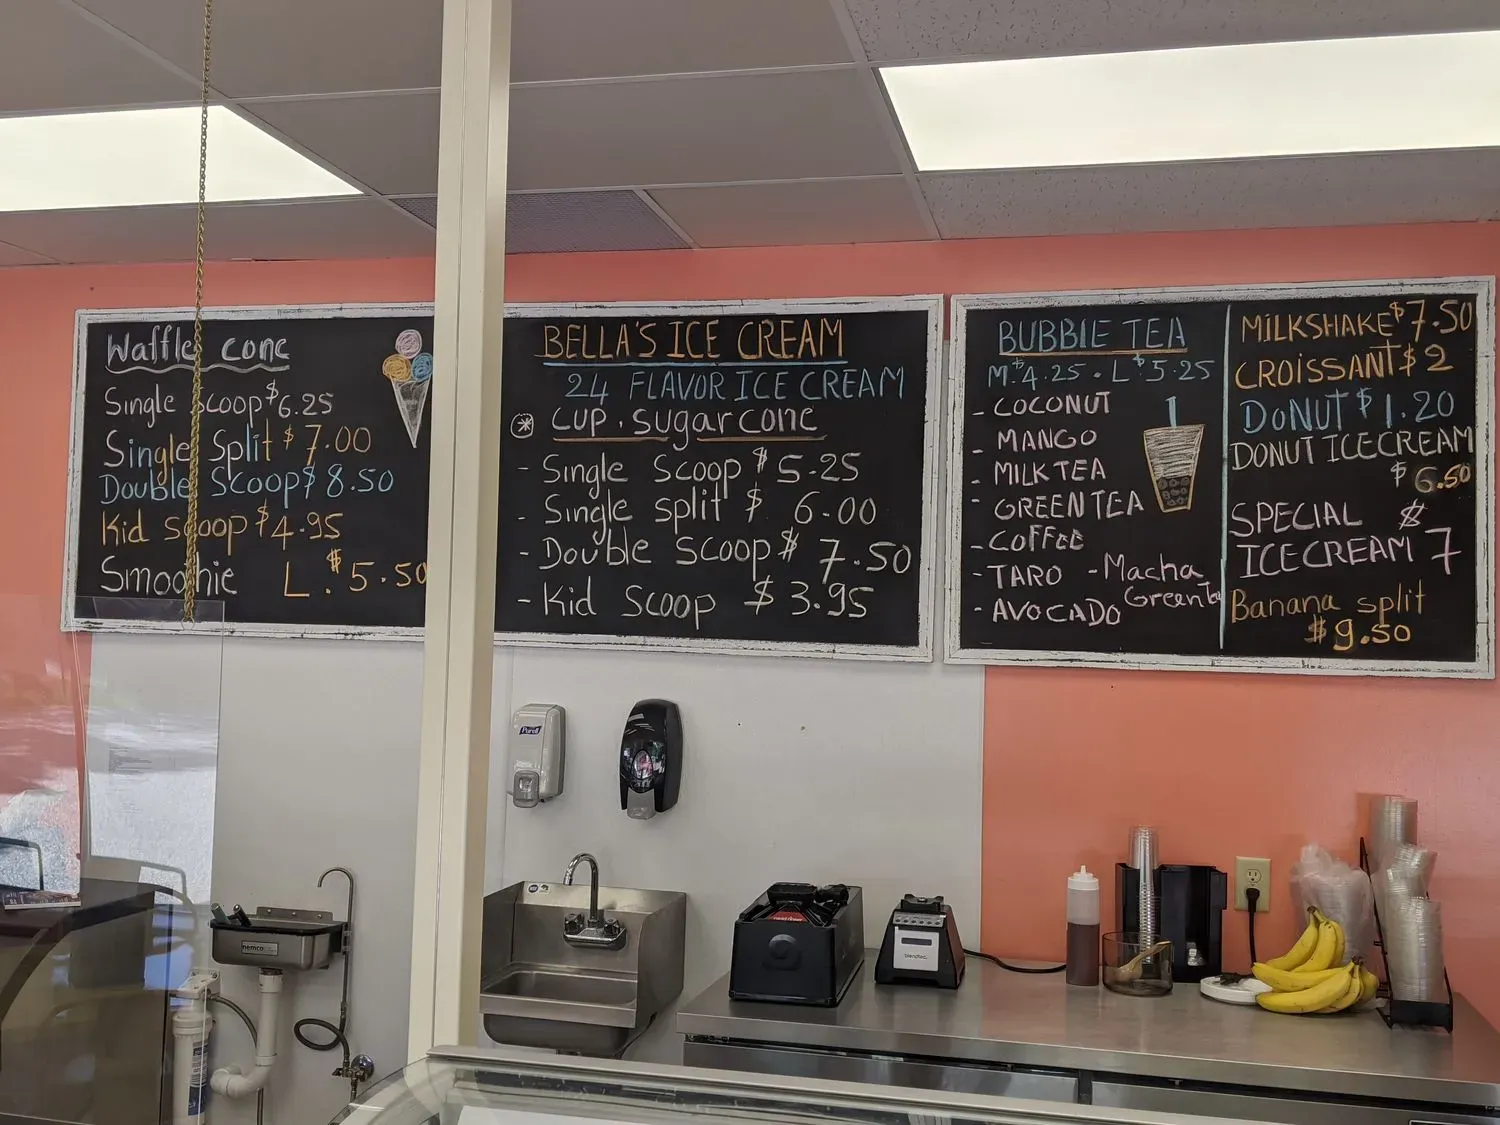 Waffle cone
Single Scoop $6.25
Single Split $7.00
Double Scoop $8.50
Kid scoop $4.95
Smoothie L. $5.50
BELLA'S ICE CREAM
24 FLAVOR ICE CREAM
* CUP. sugar cone
- Single Scoop $5.25
- Single split $6.00
- Double Scoop $7.50
- Kid Scoop $3.95
BUBBLE TEA
M. $4.25 . L $5.25
- COCONUT
- MANGO
- MILK TEA
- GREEN TEA
- COFFEE
- TARO - Macha
Green Tea
- AVOCADO
MILKSHAKE $7.50
CROISSANT $2
DONUT $1.20
DONUT ICECREAM
$6.50
SPECIAL $
ICECREAM 7
Banana split
$9.50
Purell
nemco
blendtec